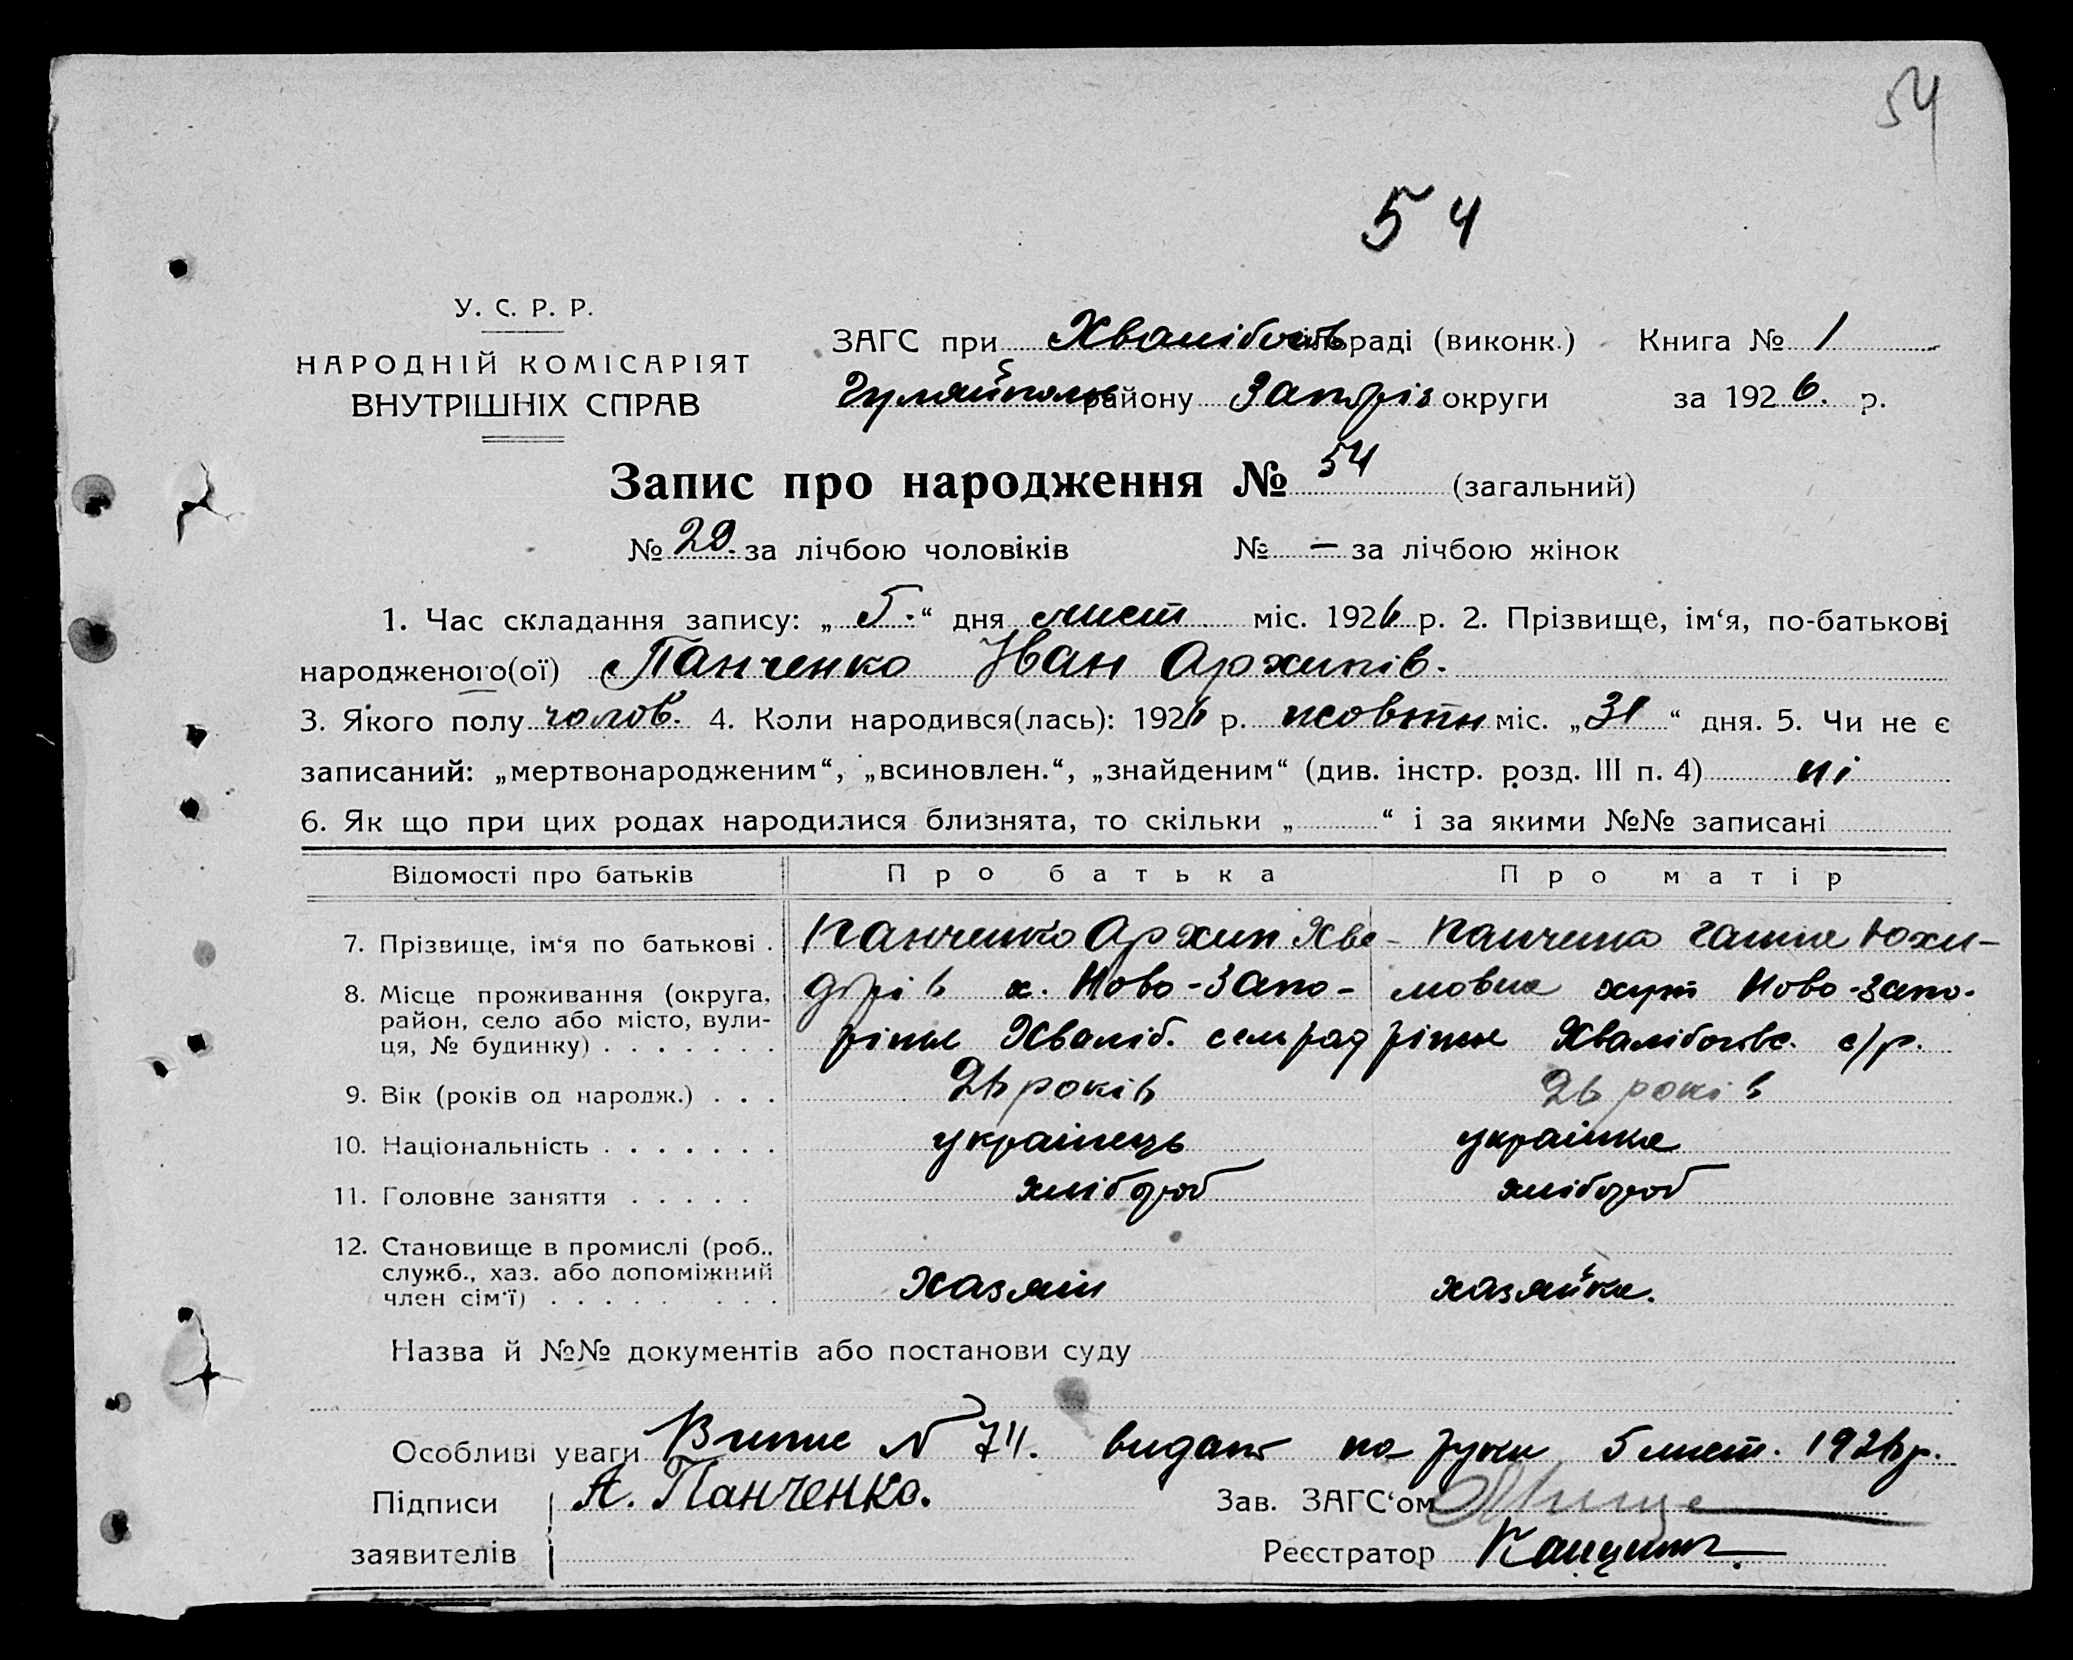 54
54
У. С. Р. Р.
НАРОДНІЙ КОМІСАРІЯТ
ВНУТРІШНІХ СПРАВ
ЗАГС при Хвалібогів раді (виконк.) Книга № 1
Гуляйпольс району Запоріз округи за 1926. р.
Запис про народження № 54 (загальний)
№ 29. за лічбою чоловіків № — за лічбою жінок
1. Час складання запису: „5.“ дня лист міс. 1926 р. 2. Прізвище, ім‘я, по-батькові
народженого(ої) Панченко Іван Архипів.
3. Якого полу чолов. 4. Коли народився(лась): 1926 р. жовтн міс. „31“ дня. 5. Чи не є
записаний: „мертвонародженим“, „всиновлен.“, „знайденим“ (див. інстр. розд. III п. 4) ні
6. Як що при цих родах народилися близнята, то скільки „ “ і за якими №№ записані
Відомості про батьків Про батька Про матір
7. Прізвище, ім‘я по батькові . Панченко Архип Хве- Панченко Ганна Юхи-
8. Місце проживання (округа, дорів х. Ново-Запо- мовна хут Ново-Запо-
район, село або місто, вули-
ця, № будинку) . . . . . . . ріжжя Хваліб. сельрад ріжжя Хвалібогівс. с/р.
9. Вік (років од народж.) . . . 26 років 26 років
10. Національність . . . . . . . українець українка
11. Головне заняття . . . . . хлібороб хлібороб
12. Становище в промислі (роб.,
служб., хаз. або допоміжний
член сім‘ї) . . . . . . . . хазяїн хазяйка.
Назва й №№ документів або постанови суду
Особливі уваги Випис N 74. видано на руки 5 лист. 1926 р.
Підписи А. Панченко. Зав. ЗАГС‘ом
заявителів Реєстратор